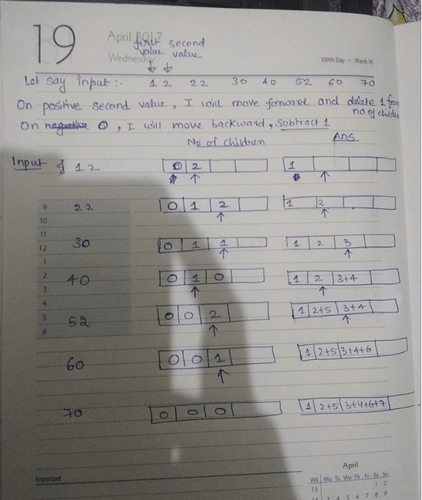 19
April 2017
Wednesday
109th Day - Week 16
first second
value value
Let say Input :- 12 22 30 40 52 60 70
On positive second value, I will move forward and delete 1 from
no of children
On 0, I will move backward, Subtract 1
No of children Ans
Input 12 0 2 1
22 0 1 2 1 2
30 0 1 1 1 2 3
40 0 1 0 1 2 3+4
52 0 0 2 1 2+5 3+4
60 0 0 1 1 2+5 3+4+6
70 0 0 0 1 2+5 3+4+6+7
9
10
11
12
1
2
3
4
5
6
Important
April
Wk Mo Tu We Th Fr Sa Su
13 1 2
14 3 4 5 6 7 8 9